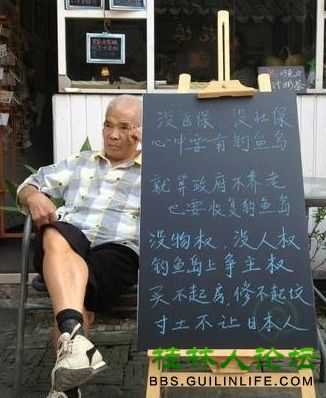 没医保，没社保
心中要有钓鱼岛
就算政府不养老
也要收复钓鱼岛
没物权，没人权
钓鱼岛上争主权
买不起房，修不起坟
寸土不让日本人
桂林人论坛
BBS.GUILINLIFE.COM